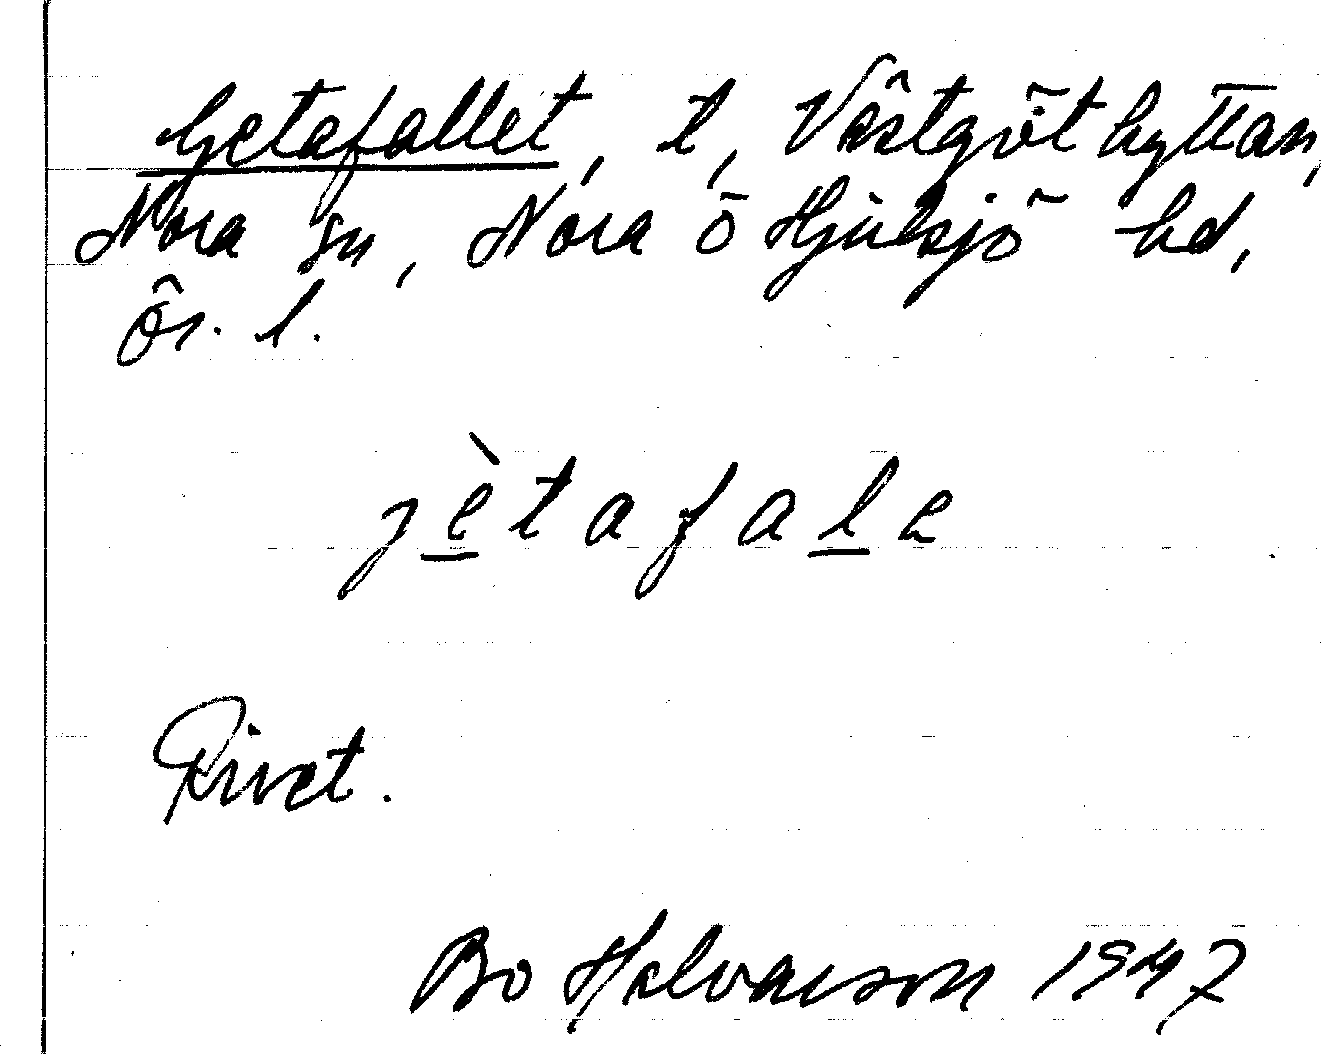 Getafallet, t, Västgöthyttan,
Nora sn, Nora ö Hjulsjö hd,
Ör. l.
jètafale
Rivet.
Bo Halvarson 1947